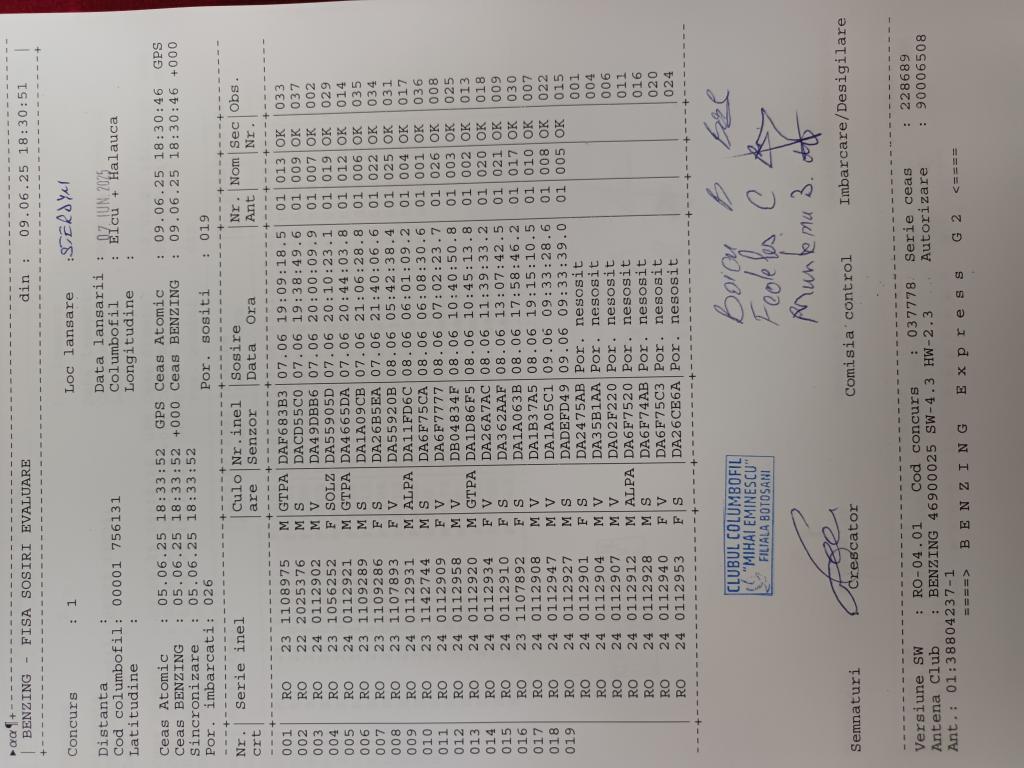 BENZING - FISA SOSIRI EVALUARE din : 09.06.25 18:30:51
Concurs : 1 Loc lansare
Distanta : Data lansarii : 07 IUN 2025
Cod columbofil: 00001 756131 Columbofil : Elcu + Halauca
Latitudine : Longitudine :
Ceas Atomic : 05.06.25 18:33:52 GPS Ceas Atomic : 09.06.25 18:30:46 GPS
Ceas BENZING : 05.06.25 18:33:52 +000 Ceas BENZING : 09.06.25 18:30:46 +000
Sincronizare : 05.06.25 18:33:52
Por. imbarcati: 026 Por. sositi : 019
Nr. | Serie inel | Culo | Nr.inel | Sosire | Nr. | Nom | Sec | Obs.
crt | | are | Senzor | Data Ora | Ant | Nr. | |
001 RO 23 1108975 M GTPA DAF683B3 07.06 19:09:18.5 01 013 OK 033
002 RO 22 2025376 M S DACD55C0 07.06 19:38:49.6 01 009 OK 037
003 RO 24 0112902 M V DA49DBB6 07.06 20:00:09.9 01 007 OK 002
004 RO 23 1056252 F SOLZ DA55905D 07.06 20:10:23.1 01 019 OK 029
005 RO 24 0112921 M GTPA DA4665DA 07.06 20:44:03.8 01 012 OK 014
006 RO 23 1109289 M S DA1A09CB 07.06 21:06:28.8 01 006 OK 035
007 RO 23 1109286 F S DA26B5EA 07.06 21:40:06.6 01 022 OK 034
008 RO 23 1107893 F V DA5592DB 08.06 05:42:38.4 01 025 OK 031
009 RO 24 0112931 M ALPA DA11FD6C 08.06 06:01:09.2 01 004 OK 017
010 RO 23 1142744 M S DA6F75CA 08.06 06:08:30.6 01 001 OK 036
011 RO 24 0112909 F V DA6F7777 08.06 07:02:23.7 01 026 OK 008
012 RO 24 0112958 M V DB04834F 08.06 10:40:50.8 01 003 OK 025
013 RO 24 0112920 M GTPA DA1D86F5 08.06 10:45:13.8 01 002 OK 013
014 RO 24 0112934 F V DA26A7AC 08.06 11:39:33.2 01 020 OK 018
015 RO 24 0112910 F S DA362AAF 08.06 13:07:42.5 01 021 OK 009
016 RO 23 1107892 F S DA1A063B 08.06 17:58:46.2 01 017 OK 030
017 RO 24 0112908 M V DA1B37A5 08.06 19:15:10.5 01 010 OK 007
018 RO 24 0112947 M V DA1A05C1 09.06 09:33:28.6 01 008 OK 022
019 RO 24 0112927 M S DADEFD49 09.06 09:33:39.0 01 005 OK 015
RO 24 0112901 F S DA2475AB Por. nesosit 001
RO 24 0112904 M V DA35B1AA Por. nesosit 004
RO 24 0112907 M V DA02F220 Por. nesosit 006
RO 24 0112912 M ALPA DA6F7520 Por. nesosit 011
RO 24 0112928 M S DA6F74AB Por. nesosit 016
RO 24 0112940 F V DA6F75C3 Por. nesosit 020
RO 24 0112953 F S DA26CE6A Por. nesosit 024
CLUBUL COLUMBOFIL
"MIHAI EMINESCU"
FILIALA BOTOSANI
Semnaturi Crescator Comisia control Imbarcare/Desigilare
Versiune SW : RO-04.01 Cod concurs : 037778 Serie ceas : 228689
Antena Club : BENZING 46900025 SW-4.3 HW-2.3 Autorizare : 90006508
Ant.: 01:38804237-1
====> B E N Z I N G E x p r e s s G 2 <====